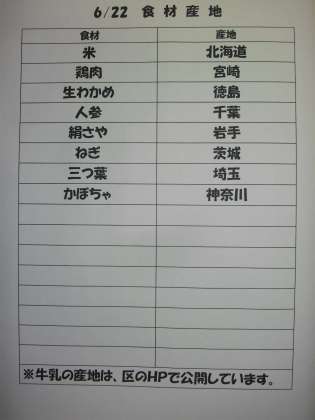 6/22 食材産地
食材 産地
米 北海道
鶏肉 宮崎
生わかめ 徳島
人参 千葉
絹さや 岩手
ねぎ 茨城
三つ葉 埼玉
かぼちゃ 神奈川
※牛乳の産地は、区のHPで公開しています。